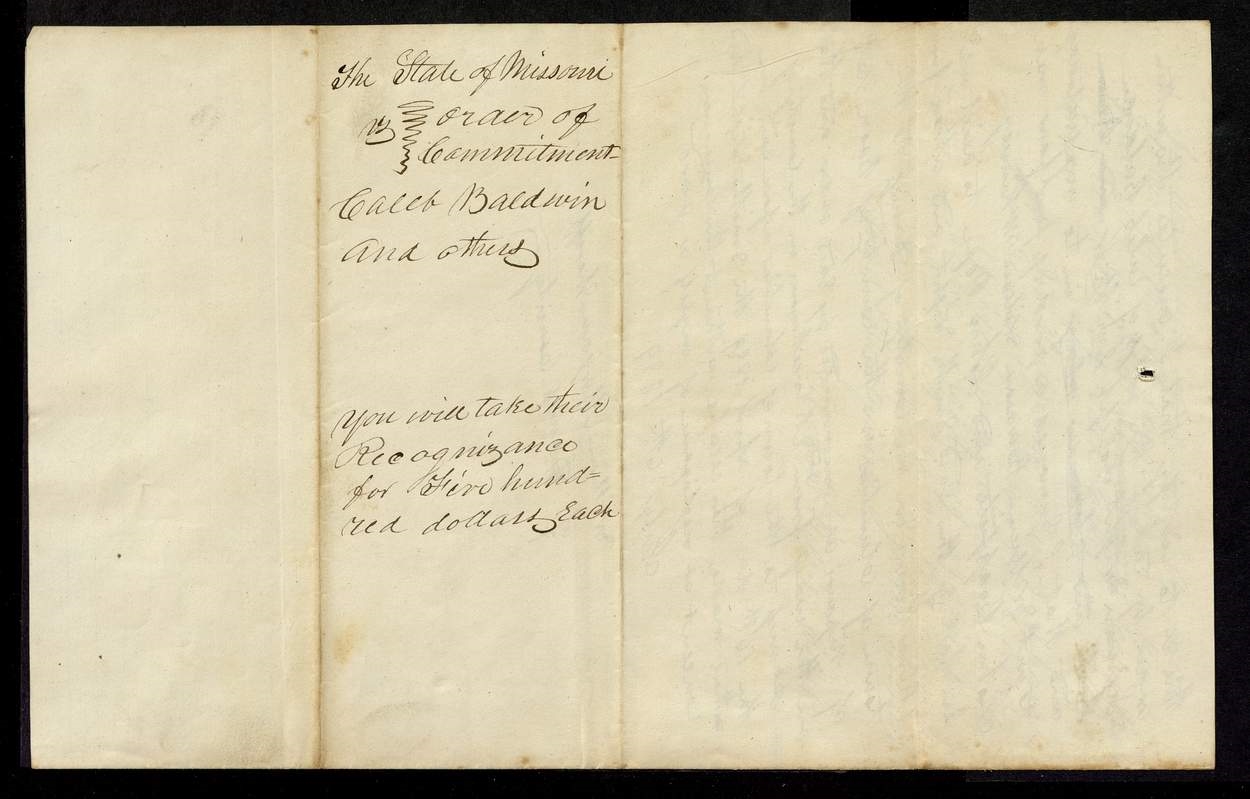 The State of Missouri
vs order of
Commitment
Caleb Baldwin
and others
you will take their
Recognizance
for Five hund=
red dollars Each